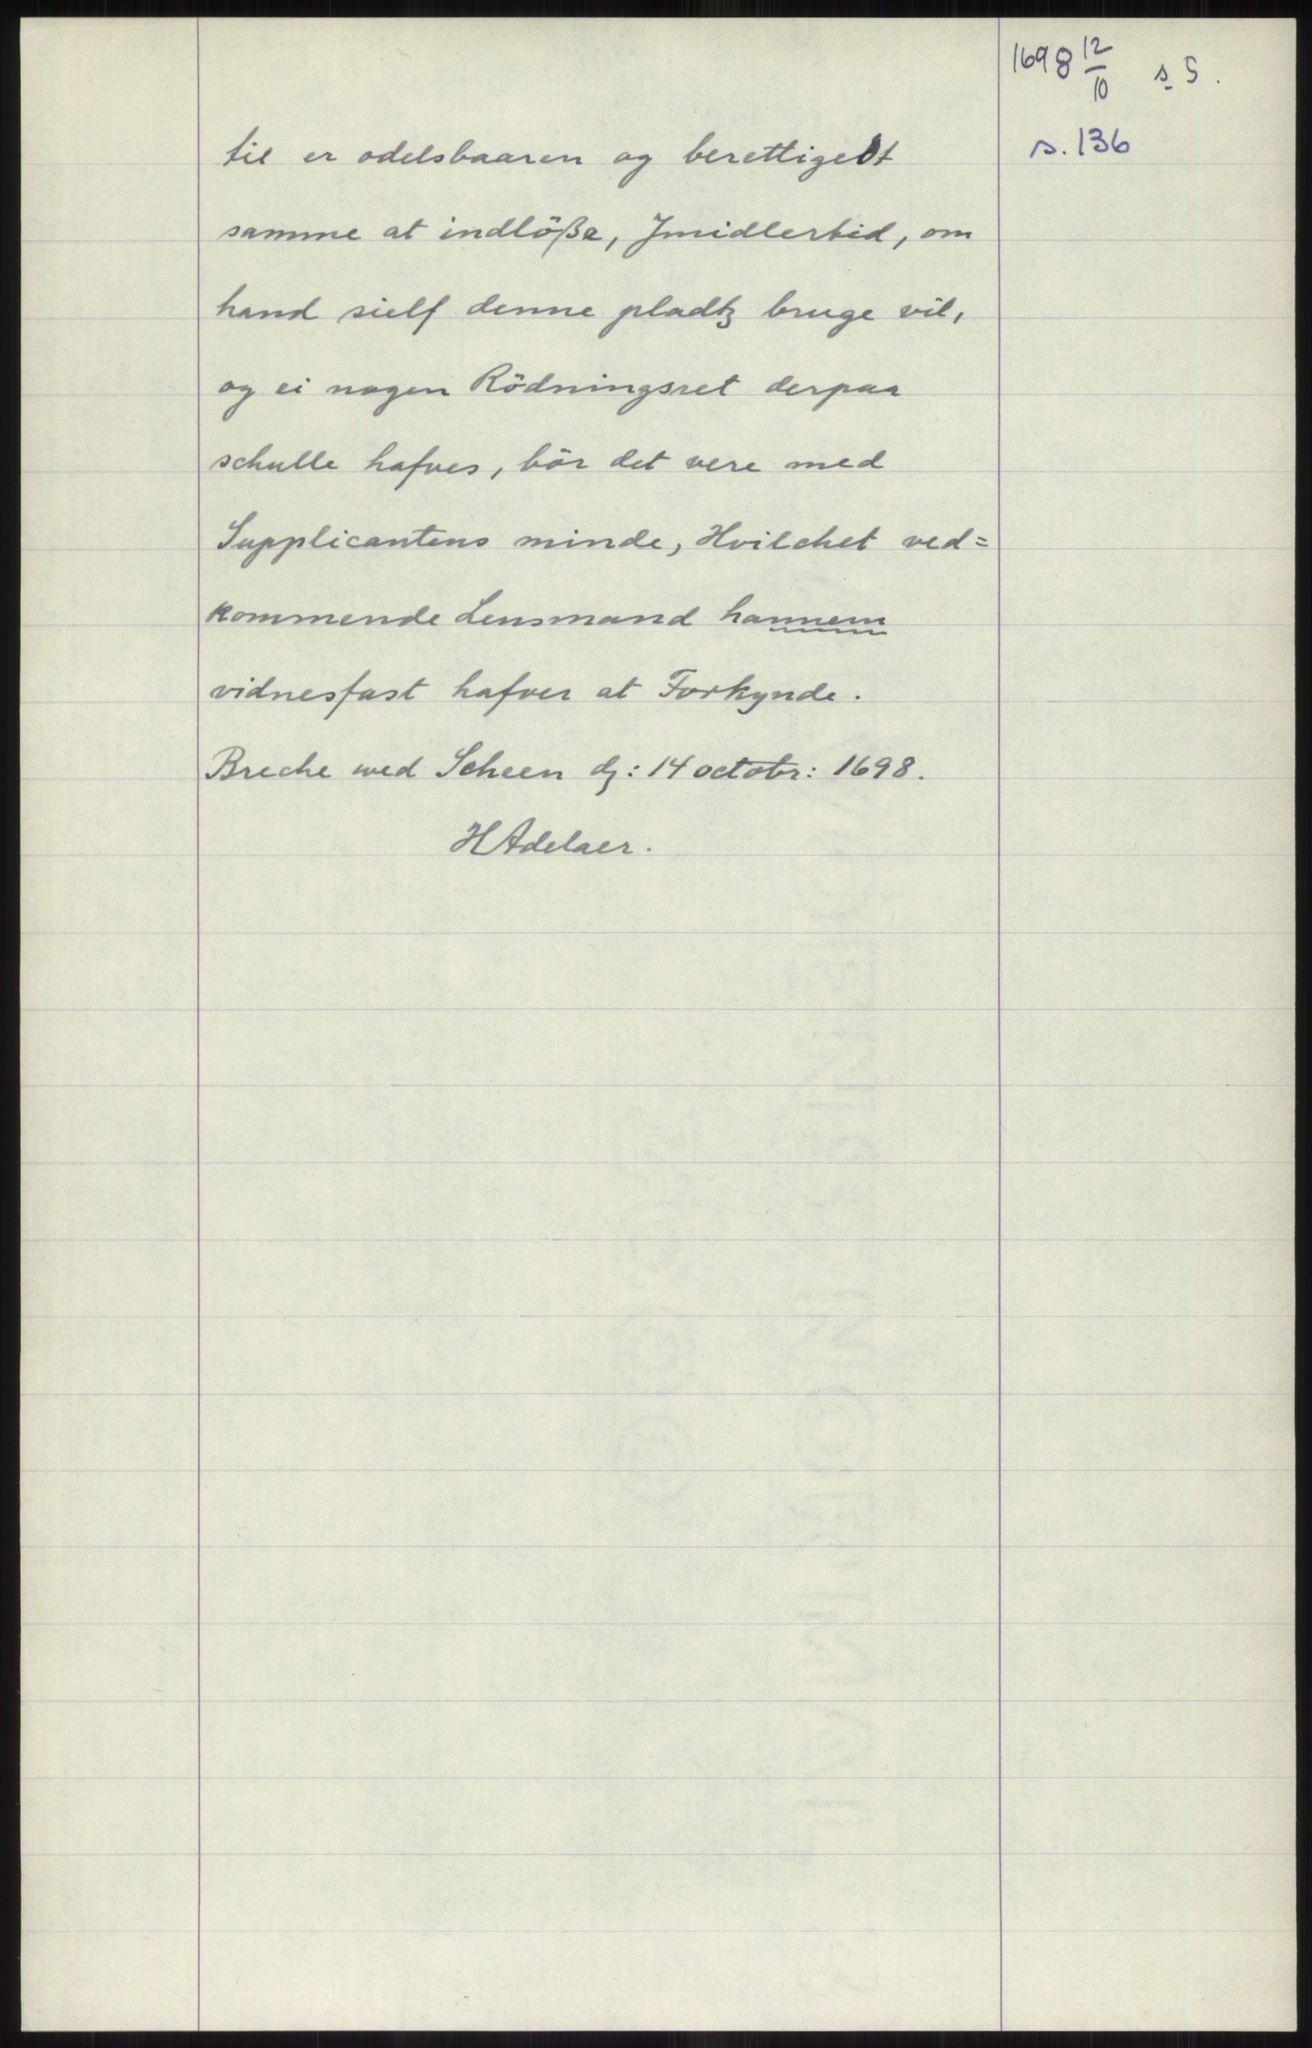 1698 12/10 s 5.
s. 136
til er odelsbaaren og berettigedt
samme at indlöße, Jmidlertid, om
hand sielf denne pladtz bruge vil,
og ei nogen Rödningsret derpaa
schulle hafves, bör det vere med
Supplicantens minde, Hvilchet ved=
kommende Lensmand hannem
vidnesfast hafver at Forkynde.
Breche wed Scheen dj: 14 octobr: 1698.
HAdelaer.